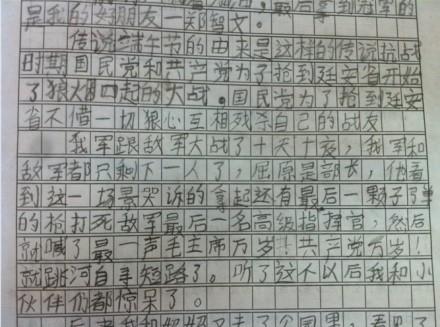 最后拿到冠军的
是我的好朋友一郑智文。
传说端午节的由来是这样的传说抗战
时期国民党和共产党为了抢到延安省开始
了狼烟四起的大战。国民党为了抢到延安
省不惜一切狠心互相残杀自己的战友
我军跟敌军大战了十天十夜,我军和
敌军都只剩下一人了,屈原是部长,他看
到这一场景哭诉的拿起还有最后一颗子弹
的枪打死敌军最后一名高级指挥官,然后
就喊了最一声毛主席万岁!共产党万岁!
就跳河自寻短路了。听了这个以后我和小
伙伴们都惊呆了。
后来我和奶奶又去了个国里,看见了